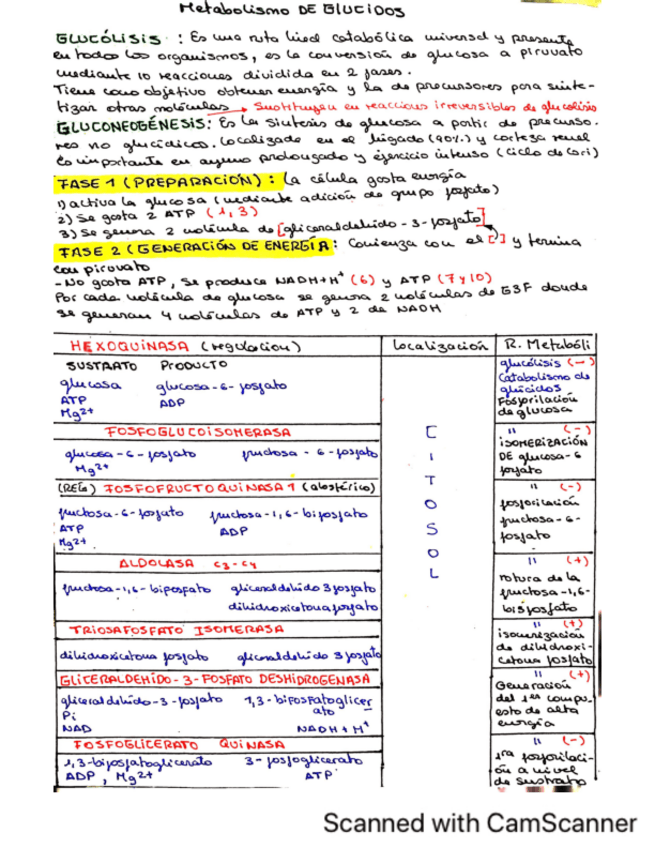 Metabolismo DE GLUCIDOS
GLUCÓLISIS : Es una ruta lineal catabólica universal y presente
en todos los organismos, es la conversión de glucosa a piruvato
mediante 10 reacciones dividida en 2 fases.
Tiene como objetivo obtener energía y la de precursores para sinte-
tizar otras moléculas → Sustituyen en reacciones irreversibles de glucolisis
GLUCONEOGÉNESIS: Es la síntesis de glucosa a partir de precurso.
res no glucídicos. Localizada en el hígado (90%) y corteza renal
Es importante en ayuno prolongado y ejercicio intenso (ciclo de Cori)
FASE 1 (PREPARACIÓN) : La célula gasta energía
1) activa la glucosa (mediante adición de grupo fosfato)
2) Se gasta 2 ATP (1,3)
3) Se genera 2 molécula de [gliceraldehido-3-fosfato]
FASE 2 (GENERACIÓN DE ENERGÍA : Comienza con el [ ] y termina
con piruvato
- No gasta ATP, se produce NADH+H+ (6) y ATP (7 y 10)
Por cada molécula de glucosa se genera 2 moléculas de G3F donde
se generan 4 moléculas de ATP y 2 de NADH
HEXOQUINASA (regulacion) Localización R. Metabóli
SUSTRATO PRODUCTO glucólisis (-)
glucosa glucosa-6-fosfato Catabolismo de
ATP ADP glúcidos
Mg2+ Fosforilación
de glucosa
FOSFOGLUCOISOMERASA " (-)
glucosa-6-fosfato fructosa-6-fosfato ISOMERIZACIÓN
Mg2+ DE glucosa-6
fosfato
(REG) FOSFOFRUCTOQUINASA 1 (alostérico) " (-)
fructosa-6-fosfato fructosa-1,6-bifosfato fosforilación
ATP ADP fructosa-6-
Mg2+ fosfato
CITOSOL
ALDOLASA C3-C4 " (+)
fructosa-1,6-bifosfato gliceraldehido 3 fosfato rotura de la
dihidroxicetona fosfato fructosa-1,6-
bisfosfato
TRIOSAFOSFATO ISOMERASA " (+)
dihidroxicetona fosfato gliceraldehido 3 fosfato isomerización
de dihidroxi-
cetona fosfato
GLICERALDEHIDO-3-FOSFATO DESHIDROGENASA " (+)
gliceraldehido-3-fosfato 1,3-bifosfatoglicer Generación
Pi ato del 1er compu.
NAD NADH+H+ esto de alta
energía
FOSFOGLICERATO QUINASA " (-)
1,3-bifosfatoglicerato 3-fosfoglicerato 1ra fosforilaci-
ADP, Mg2+ ATP ón a nivel
de sustrato
Scanned with CamScanner